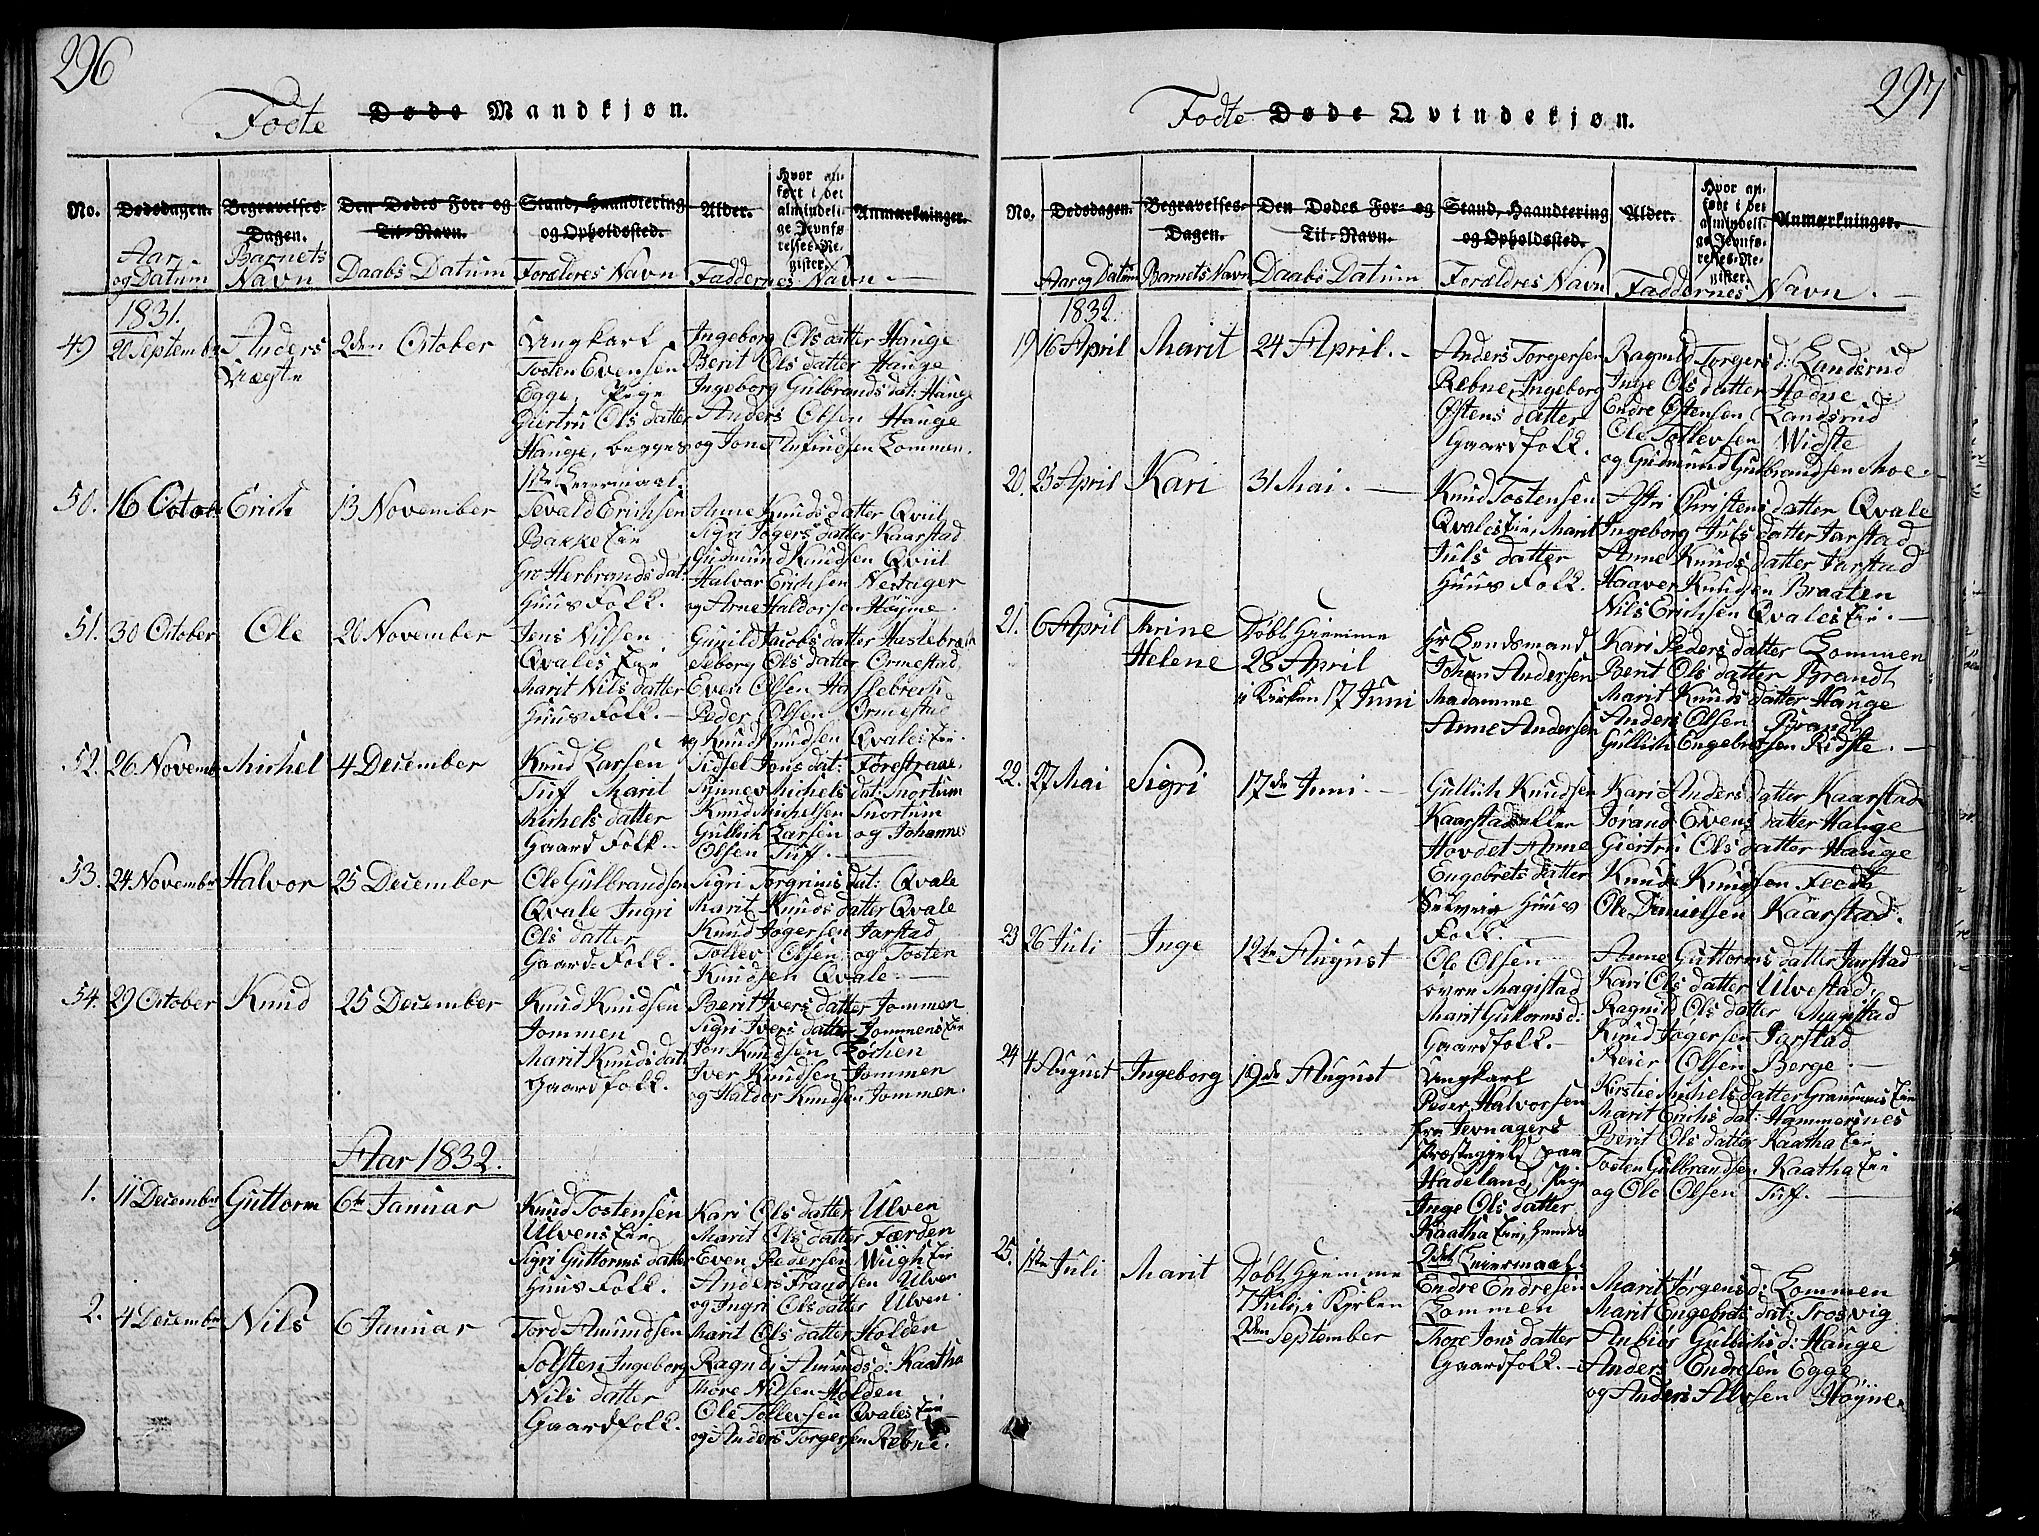 296
Fødte Døde Mandkjøn.
No.
Dødsdagen.
Begravelses-
Dagen.
Den Dødes For- og
Til-Navn.
Stand, Haandtering
og Opholdssted.
Alder.
Hvor an-
ført i det
almindeli-
ge Jevnfø-
relses-Re-
gister.
Anmærkninger.
Aar
og Datum
Barnets
Navn
Daabs Datum
Forældres Navn
Faddernes Navn
1831.
49
20 September
Anders
2den October
Ungkarl
Tosten Evensen
Egge, Pige
Giertru Olsdatter
Hauge, begges
1ste Leiermaal
Ingeborg Olsdatter Hauge
Berit Olsdatter Hauge
Ingeborg Gulbrandsdat: Hauge
Anders Olsen Hauge
og Jone Arfindsen Lommen.
50.
16 Octob
Erich
13 November
Sevald Erichsen
Bakke Eie
Gro Herbrandsdat:
Huus Folk.
Anne Knudsdatter Qviil
Sigri Jogersdatter Kaarstad
Gudmund Knudsen Qviil
Halvor Erichsen Nestager
og Arne Haldorsen Høyme.
51.
30 October
Ole
20 November
Jens Nilsen
Qvales Eie
Marit Nilsdatter
Huus Folk.
Gunild Jacobsdatter
Seborg Olsdatter Ormestad
Even Olsen
Peder Olsen Ormestad
og Knud Knudsen Qvales Eie.
52.
26 Novemb
Michel
4 December
Knud Larsen
Tuff Marit
Michelsdatter
Gaard Folk.
Sidsel Jonsdat: Forestrane
Synnev Michelsdat: Snortum
Knud Michelsen Snortum
Gullich Larsen og Johannes
Olsen Tuff.
53.
24 November
Halvor
25 December
Ole Gulbrandsen
Qvale Ingri
Olsdatter
Gaard-Folk.
Sigri Torgrimsdat: Qvale
Marit Knudsdatter Qvale
Knud Jogersen Jarstad
Tollev Olsen og Tosten
Knudsen Qvale.
54.
29 October
Knud
25 December
Knud Knudsen
Jommen
Marit Knudsdat:
Gaardfolk.
Berit Iversdatter Jommen
Sigri Iversdatter Jommens Eie
Jon Knudsen
Iver Knudsen Jommen
og Haldor Knudsen Jommen.
Aar 1832.
1.
11 December
Guttorm
6te Januar
Knud Tostensen
Ulvens Eie
Sigri Guttormsdatter
Huus Folk.
Kari Olsdatter Ulven
Marit Olsdatter Færden
Even Pedersen Wiigs Eie
Anders Frandsen Ulven
og Ingri Olsdatter Ulven.
2.
4 December
Nils
6 Januar
Tord Amundsen
Solsten Ingeborg
Nilsdatter
Gaardfolk.
Marit Olsdatter Holden
Ragndi Amundsd: Kaatha
Thore Nilsen Holden
Ole Tollevsen Qvales Eie
og Anders Torgersen Rebne.
297
Fødte Døde Qvindekjøn.
No.
Dødsdagen.
Begravelses-
Dagen.
Den Dødes For- og
Til-Navn.
Stand, Haandtering
og Opholdssted.
Alder.
Hvor an-
ført i det
almindeli-
ge Jevnfø-
relses-Re-
gister.
Anmærkninger.
Aar og Datum
Barnets Navn
Daabs Datum
Forældres Navn
Faddernes Navn.
1832
19
16 April
Marit
24 April.
Anders Torgersen
Rebne, Ingeborg
Østensdatter
Gaardfolk.
Ragnild Torgersd: Landsrud
Inge Olsdatter Hodne
Endre Østensen Landsrud
Ole Tollevsen Widste
og Gudmund Gulbrandsen Moe.
20.
23 April
Kari
31 Mai.
Knud Tostensen
Qvales Eie, Marit
Julsdatter
Huus Folk.
Astri Christensdatter Qvale
Ingeborg Julsdatter Jarstad
Anne Knudsdatter Jarstad
Haaver Knudsen Braaten
Nils Erichsen Qvales Eie.
21.
6 April
Thrine
Helene
Døbt Hjemme
28 April
i Kirken 17 Juni
Hr Lendsmand
Johan Andersen
Madamme
Anne Andersen
Kari Pedersdatter Lommen
Berit Olsdatter Brandt
Marit Knudsdatter Hauge
Anders Olsen Brandt
Gullich Engebretsen Ridste.
22.
27 Mai
Sigri
17de Juni.
Gullich Knudsen
Kaarstad eller
Hovdet Anne
Engebretsdatter
Huus
Folk.
Kari Andersdatter Kaarstad
Jørand Evensdatter Hauge
Giertru Olsdatter Hauge
Knud Knudsen
Ole Danielsen Kaarstad.
23
26 Juli
Inge
12te August
Ole Olsen
øvre Magistad
Marit Guttormsd:
Gaardfolk.
Anne Guttormsdatter Jarstad
Kari Olsdatter Ulvestad
Ragnild Olsdatter Magistad
Knud Jogersen Jarstad
Reier Olsen Berge.
24
4 August
Ingeborg
19de August
Ungkarl
Peder Halvorsen
fra Jevnagers
Præstegjeld paa
Hadeland, Pige
Inge Olsdatter
Kaatha Eie,
2det Leiermaal.
Kirstie Michelsdatter
Marit Erichsdat: Hammersnes
Berit Olsdatter Kaatha Eie
Tosten Gulbrandsen Kaatha Eie
og Ole Olsen Tuff.
25.
1ste Juli
Marit
Døbt Hjemme
7 Juli, i Kirken
2den September
Endre Endresen
Lommen
Thore Jonsdatter
Gaardfolk.
Marit Jørgensd: Lommen
Marit Engebretsdat: Trosvig
Anbiør Gullichsd: Hauge
Anders Endresen Egge
og Anders Alvsen Høyne.